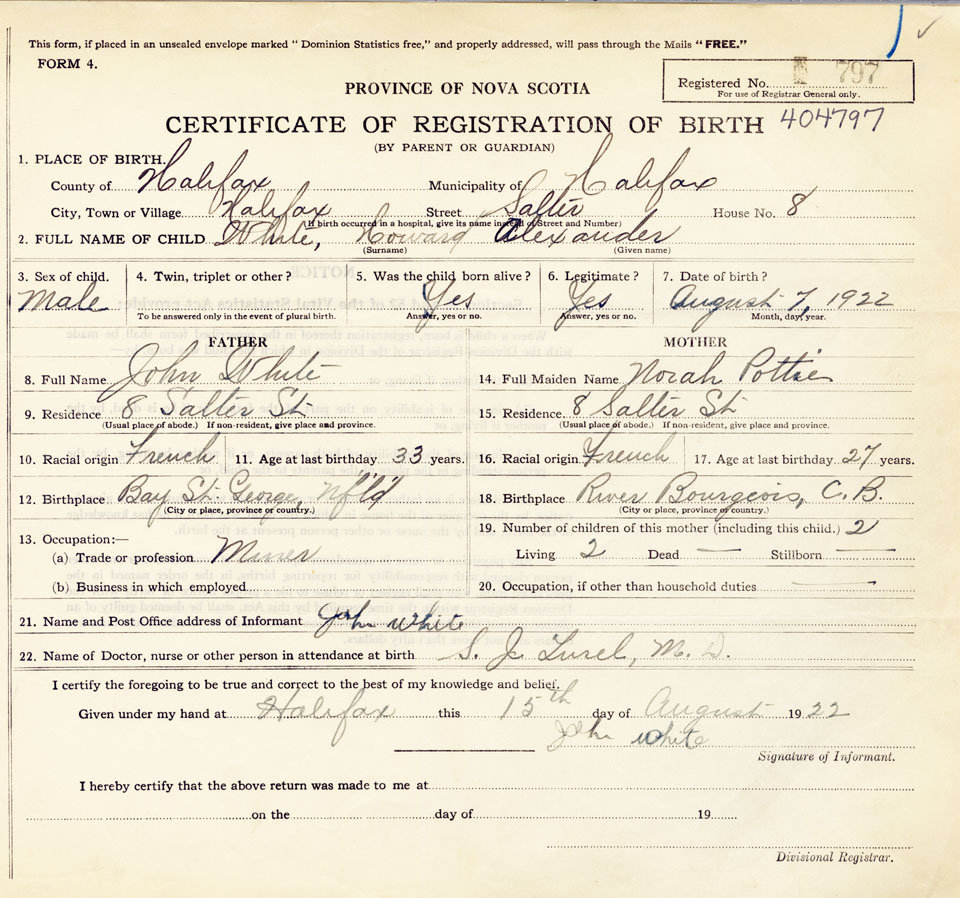 This form, if placed in an unsealed envelope marked "Dominion Statistics free," and properly addressed, will pass through the Mails "FREE."
FORM 4.
Registered No. 797
For use of Registrar General only.
PROVINCE OF NOVA SCOTIA
CERTIFICATE OF REGISTRATION OF BIRTH 404797
(BY PARENT OR GUARDIAN)
1. PLACE OF BIRTH.
County of Halifax Municipality of Halifax
City, Town or Village Halifax Street Salter House No. 8
(If birth occurred in a hospital, give its name instead of Street and Number)
2. FULL NAME OF CHILD White, Howard Alexander
(Surname) (Given name)
3. Sex of child. 4. Twin, triplet or other? 5. Was the child born alive? 6. Legitimate? 7. Date of birth?
Male Yes Yes August 7, 1922
To be answered only in the event of plural birth. Answer, yes or no. Answer, yes or no. Month, day, year.
FATHER MOTHER
8. Full Name John White 14. Full Maiden Name Norah Pottie
9. Residence 8 Salter St. 15. Residence 8 Salter St.
(Usual place of abode.) If non-resident, give place and province. (Usual place of abode.) If non-resident, give place and province.
10. Racial origin French 11. Age at last birthday 33 years. 16. Racial origin French 17. Age at last birthday 27 years.
12. Birthplace Bay St. George, Nf'ld 18. Birthplace River Bourgeois, C. B.
(City or place, province or country.) (City or place, province or country.)
19. Number of children of this mother (including this child.) 2
13. Occupation:—
(a) Trade or profession Miner Living 2 Dead — Stillborn —
(b) Business in which employed 20. Occupation, if other than household duties —
21. Name and Post Office address of Informant John White
22. Name of Doctor, nurse or other person in attendance at birth S. J. M. D.
I certify the foregoing to be true and correct to the best of my knowledge and belief.
Given under my hand at Halifax this 15th day of August 1922
John White
Signature of Informant.
I hereby certify that the above return was made to me at
on the day of 19
Divisional Registrar.